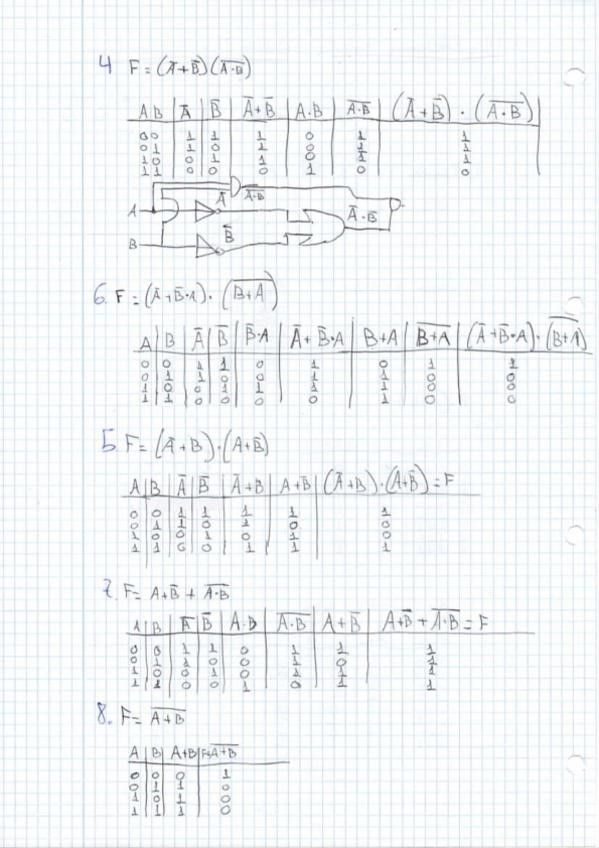 4 F = (Ā+B̄)(A̅·̅B̅)
A B | Ā | B̄ | Ā+B̄ | A·B | A̅·̅B̅ | (Ā+B̄)·(A̅·̅B̅)
0 0 1 1 1 0 1 1
0 1 1 0 1 0 1 1
1 0 0 1 1 0 1 1
1 1 0 0 0 1 0 0
A̅·̅B̅
A Ā Ā·B̄
B B̄
6. F = (Ā+B̄·A)·(B̅+̅A̅)
A | B | Ā | B̄ | B̄·A | Ā+B̄·A | B+A | B̅+̅A̅ | (Ā+B̄·A)·(B̅+̅A̅)
0 0 1 1 0 1 0 1 1
0 1 1 0 0 1 1 0 0
1 0 0 1 1 1 1 0 0
1 1 0 0 0 0 1 0 0
5. F = (Ā+B)·(A+B̄)
A | B | Ā | B̄ | Ā+B | A+B̄ | (Ā+B)·(A+B̄) = F
0 0 1 1 1 1 1
0 1 1 0 1 0 0
1 0 0 1 0 1 0
1 1 0 0 1 1 1
7. F = A+B̄ + A̅·̅B̅
A | B | Ā | B̄ | A·B | A̅·̅B̅ | A+B̄ | A+B̄ + A̅·̅B̅ = F
0 0 1 1 0 1 1 1
0 1 1 0 0 1 0 1
1 0 0 1 0 1 1 1
1 1 0 0 1 0 1 1
8. F = A̅+̅B̅
A | B | A+B | F=A̅+̅B̅
0 0 0 1
0 1 1 0
1 0 1 0
1 1 1 0